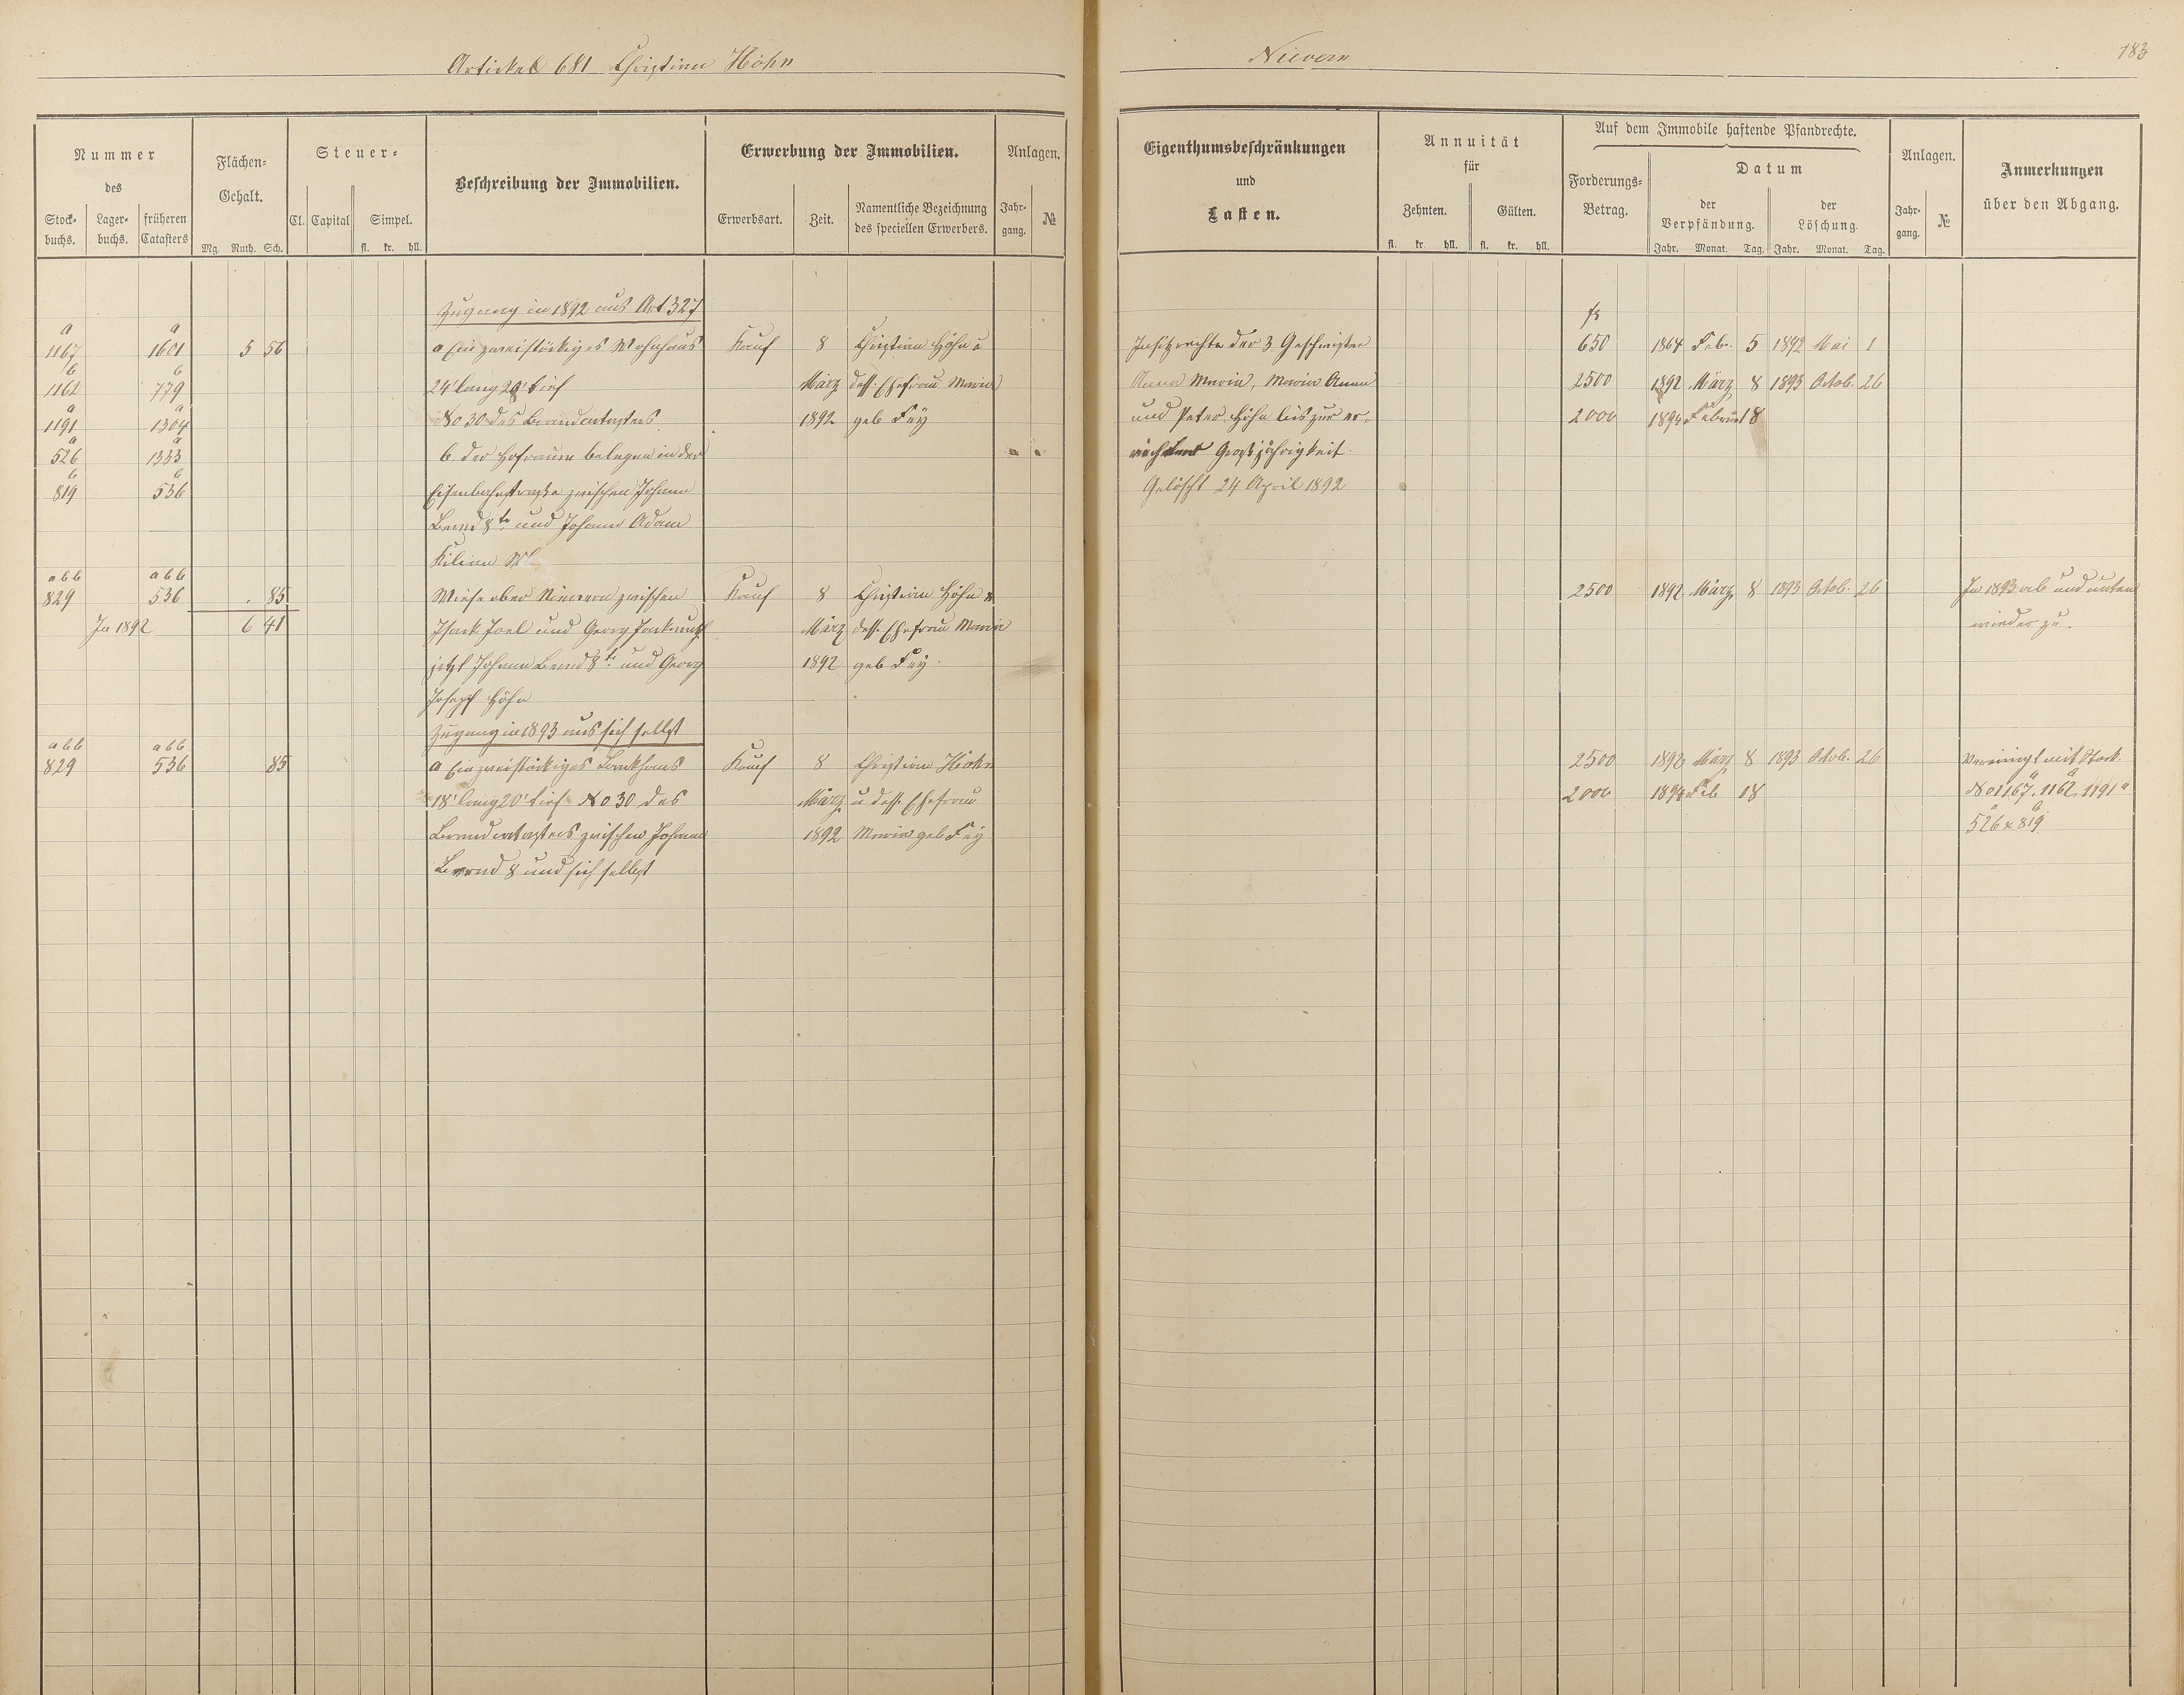 Artickel 681 Christian Höhn
Nievern
183
Nummer
des
Stock-
buchs.
Lager-
buchs.
früheren
Catasters
Flächen-
Gehalt.
Mg. Ruth. Sch.
Steuer-
Cl. Capital Simpel.
fl. kr. hll.
Beschreibung der Immobilien.
Erwerbung der Immobilien.
Erwerbsart. Zeit.
Namentliche Bezeichnung
des speciellen Erwerbers.
Anlagen.
Jahr-
gang.
№
Zugang in 1892 aus Art 327
a a
1167 1601 5 56 a Ein zweistöckiges Wohnhaus Kauf 8 Christian Höhn u
b b
1162 779 24' lang 28' tief März dess. Ehefrau Maria
a a
1191 1304 No 30 des Brandcatasters 1892 geb Fey
a a
526 1333 b der Hofraum belegen in der
b b
819 536 Eisenbahnstraße zwischen Johann
Bernd 8te und Johann Adam
Kilian Wb.
abb abb
829 536 . 85 Wiese ober Nievern zwischen Kauf 8 Christian Höhn u
In 1892 6 41 Isack Joel und Georg März dess. Ehefrau Maria
jetzt Johann Bernd 8te und Georg 1892 geb Fey.
Joseph Höhn
Zugang in 1893 aus sich selbst
abb abb
829 536 85 a Ein zweistöckiges Backhaus Kauf 8 Christian Höhn
18' lang 20' tief No 30 des März u dess. Ehefrau
Brandcatasters zwischen Johann 1892 Maria geb Fey
Bernd 8 und sich selbst
Eigenthumsbeschränkungen
und
Lasten.
Annuität
für
Zehnten. Gülten.
fl. kr. hll. fl. kr. hll.
Auf dem Immobile haftende Pfandrechte.
Forderungs-
Betrag.
Datum
der
Verpfändung.
der
Löschung.
Jahr. Monat. Tag. Jahr. Monat. Tag.
Anlagen.
Jahr-
gang.
№
Anmerkungen
über den Abgang.
Insitzrechte der 3 Geschwister 650 1864 Feb. 5 1892 Mai 1
Anna Maria, Maria Anna 2500 1892 März 8 1893 Octob. 26
und Peter Höhn bis zur er- 2000 1894 Februar 18
reichten Großjährigkeit.
Gelöscht 24 April 1892
2500 1892 März 8 1893 Octob. 26 In 1893 ab und unten
wieder zu.
2500 1892 März 8 1893 Octob. 26 Vereinigt mit Stock.
2000 1894 Feb 18 No 1167a, 1162b, 1191a
526a & 819b